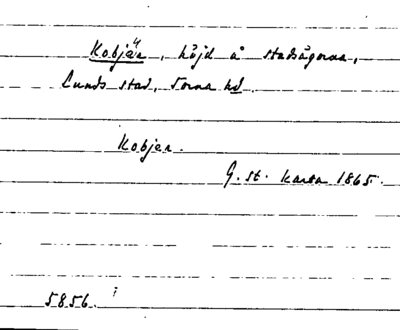 Kobjär, höjd å stadsägorna,
Lunds stad, Torna hd.
Kobjer.
G. st. karta 1865.
5856.